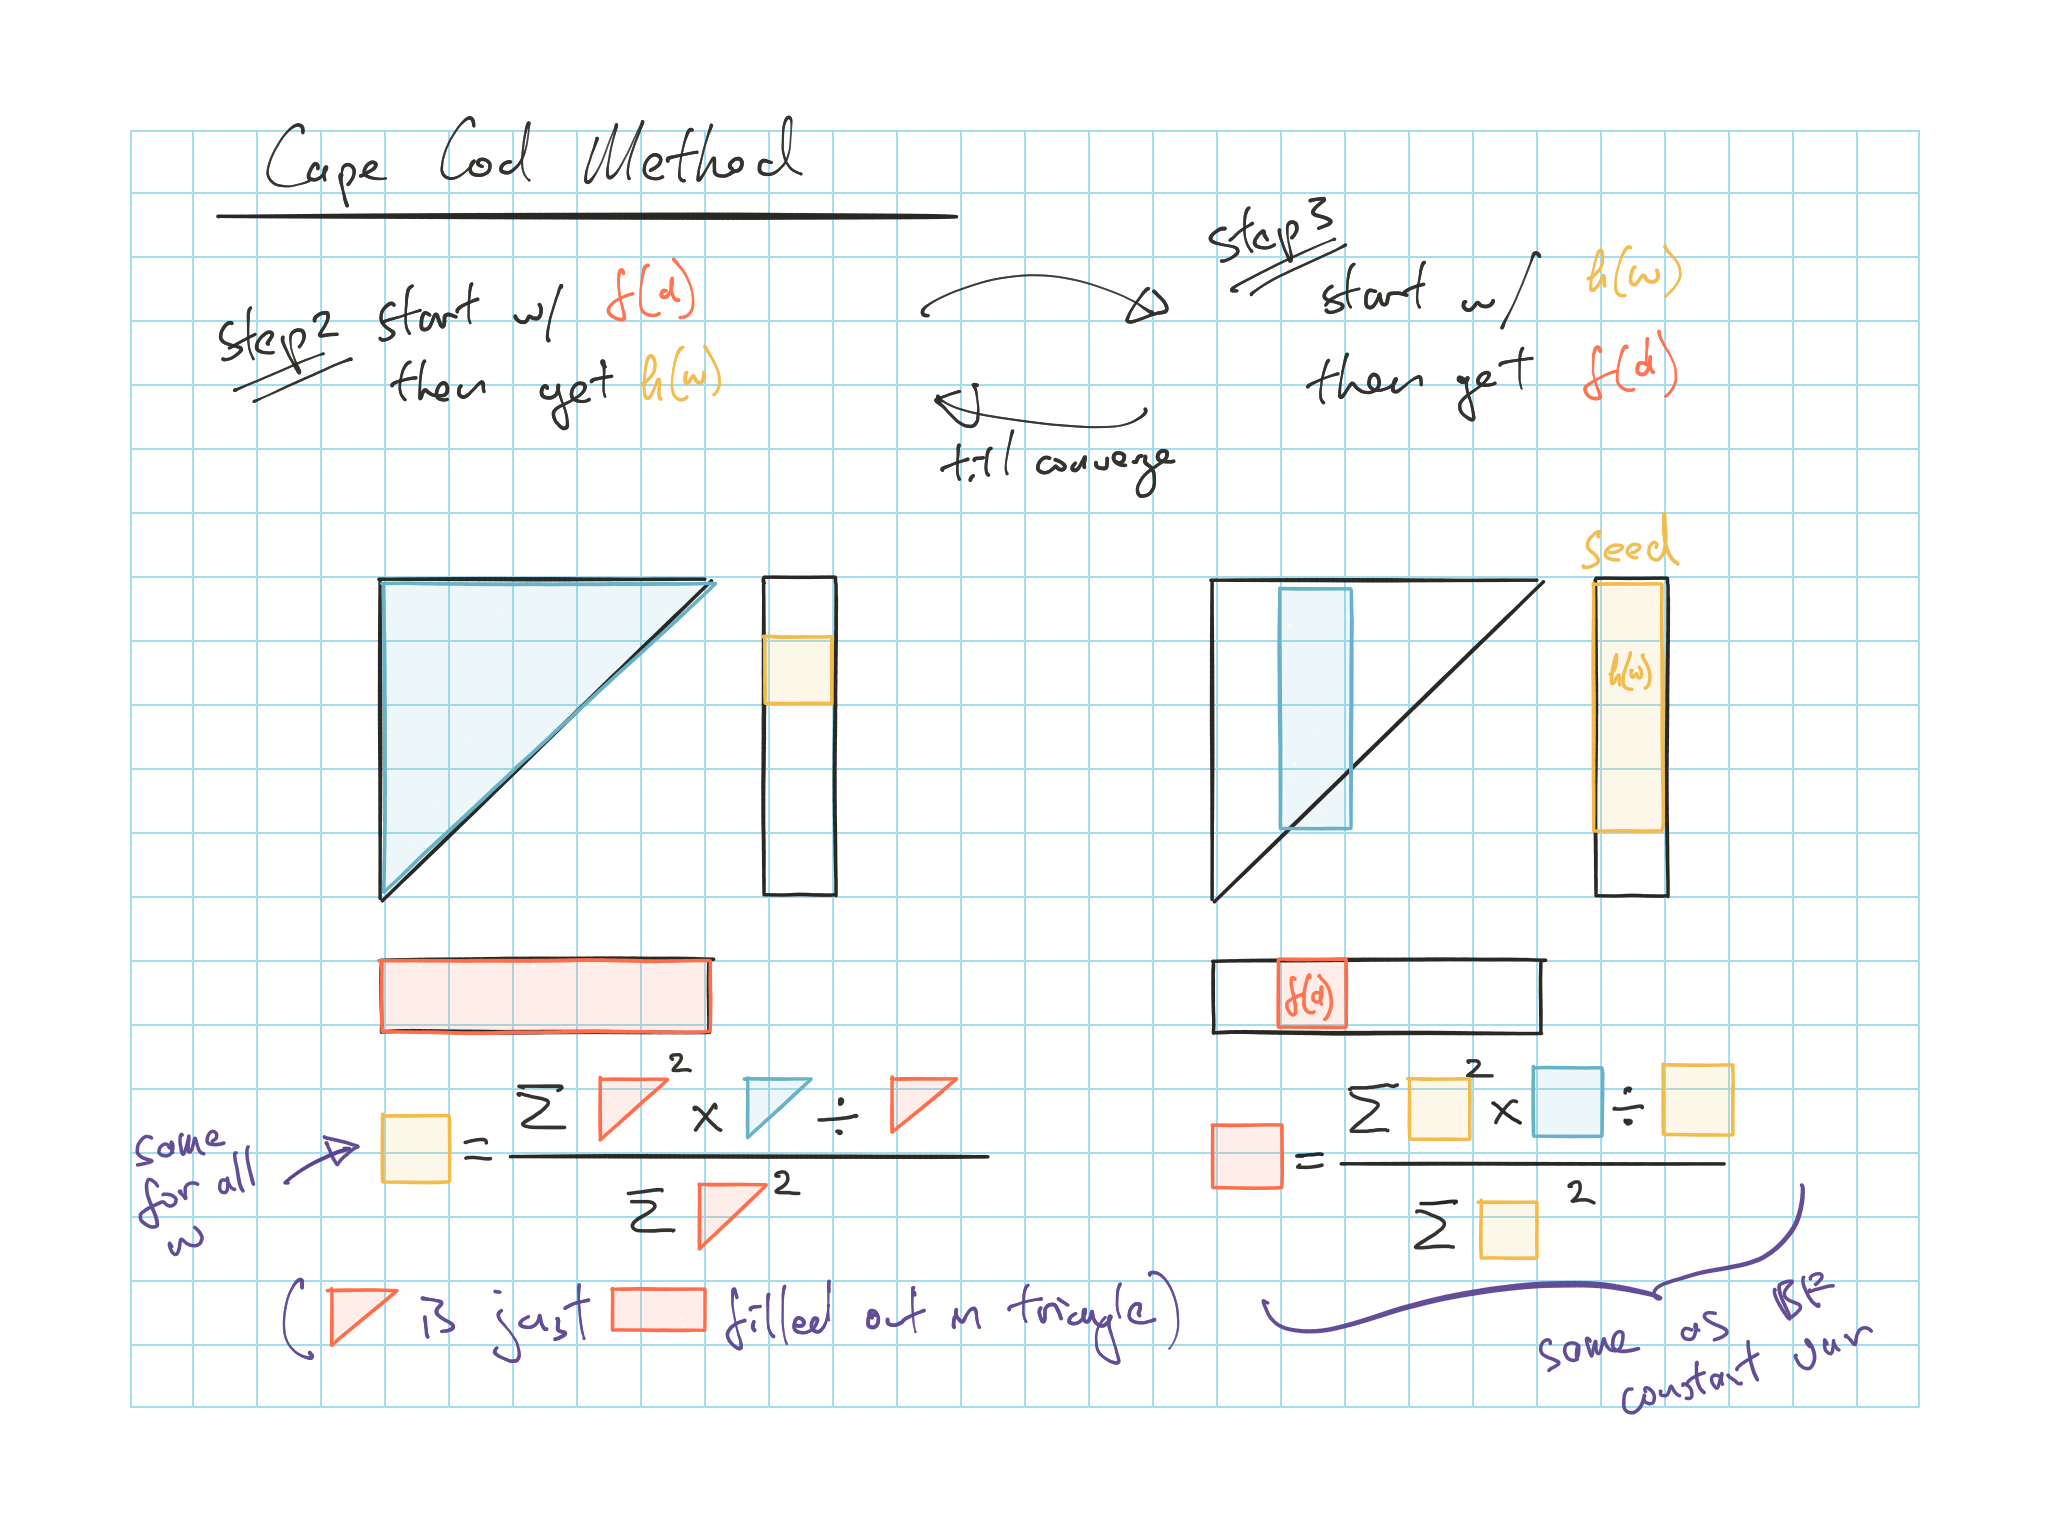 Cape Cod Method
step 2 start w/ f(d)
then get h(w)
step 3
start w/ h(w)
then get f(d)
till converge
seed
h(w)
f(d)
Σ ² × ÷
=
Σ ²
same
for all
w
Σ ² × ÷
=
Σ ²
( is just filled out in triangle)
same as BF
constant var